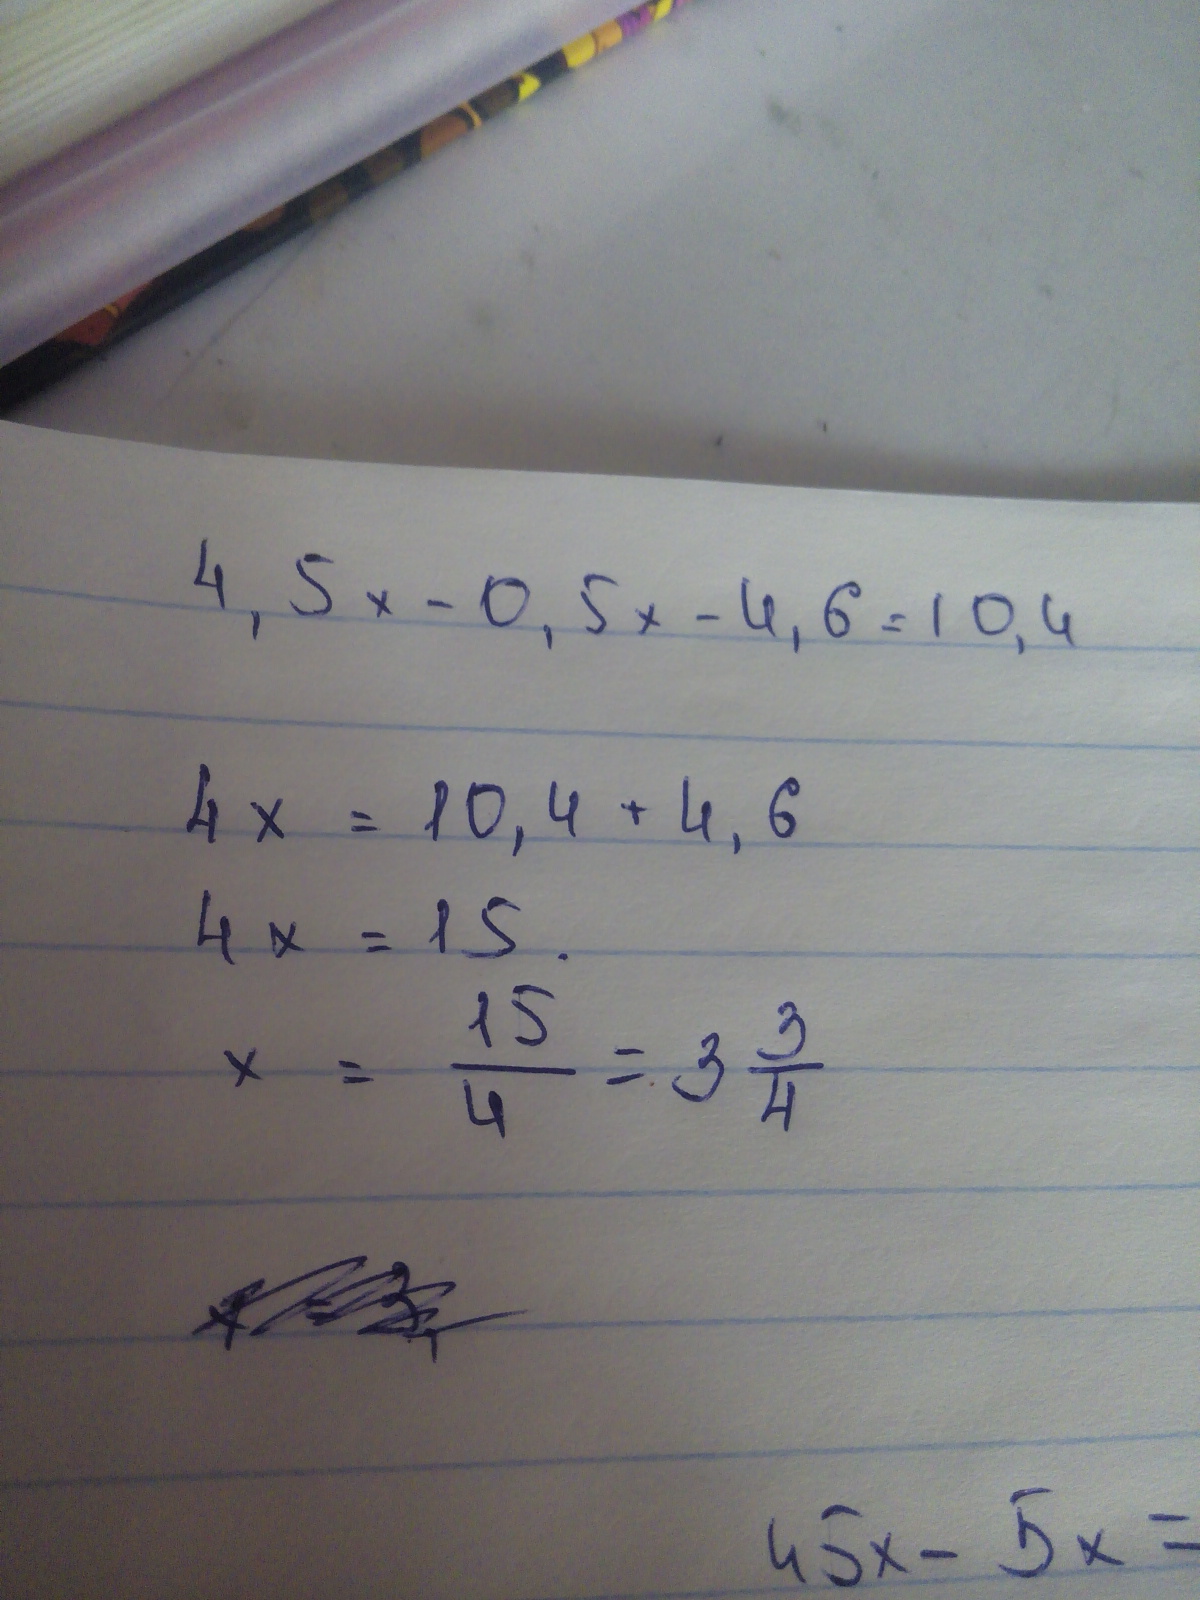 4,5x-0,5x-4,6=10,4
4x = 10,4 + 4,6
4x = 15.
x = 15/4 = 3 3/4
45x - 5x =